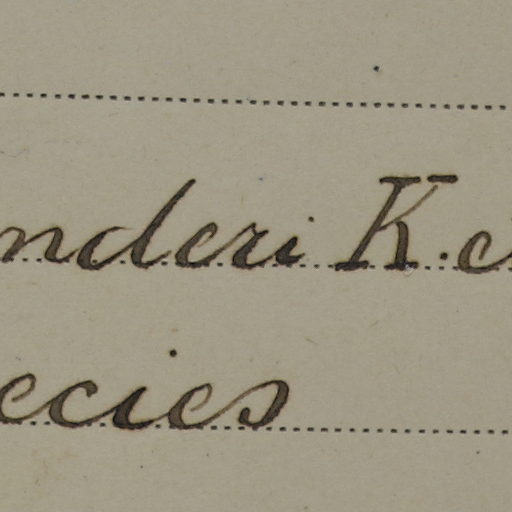 nderi K. e
ecies